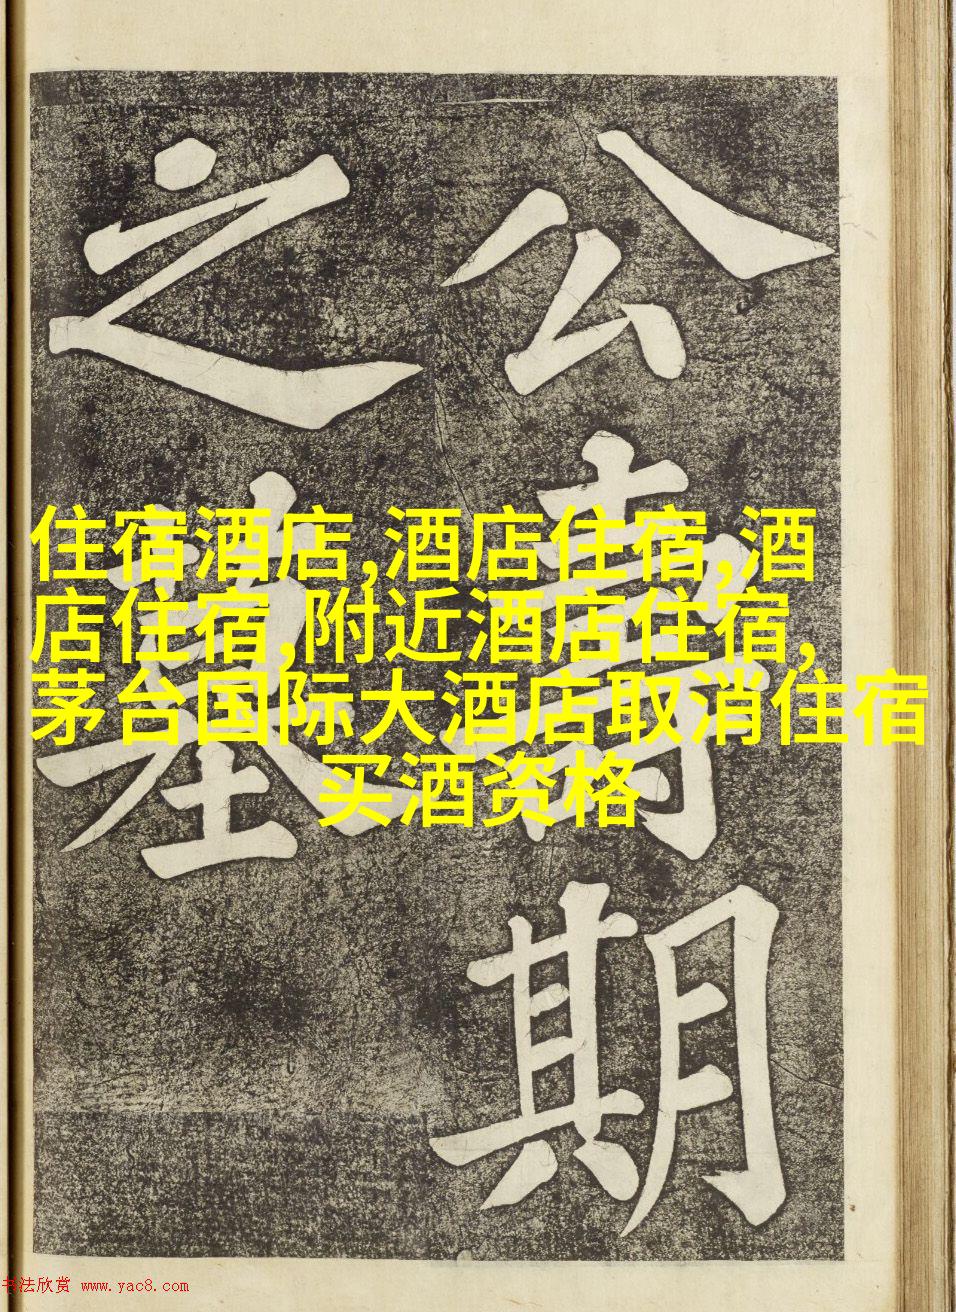 公壽期
之墓
住宿酒店,酒店住宿,酒
店住宿,附近酒店住宿,
茅台国际大酒店取消住宿
买酒资格
书法欣赏 www.yac8.com